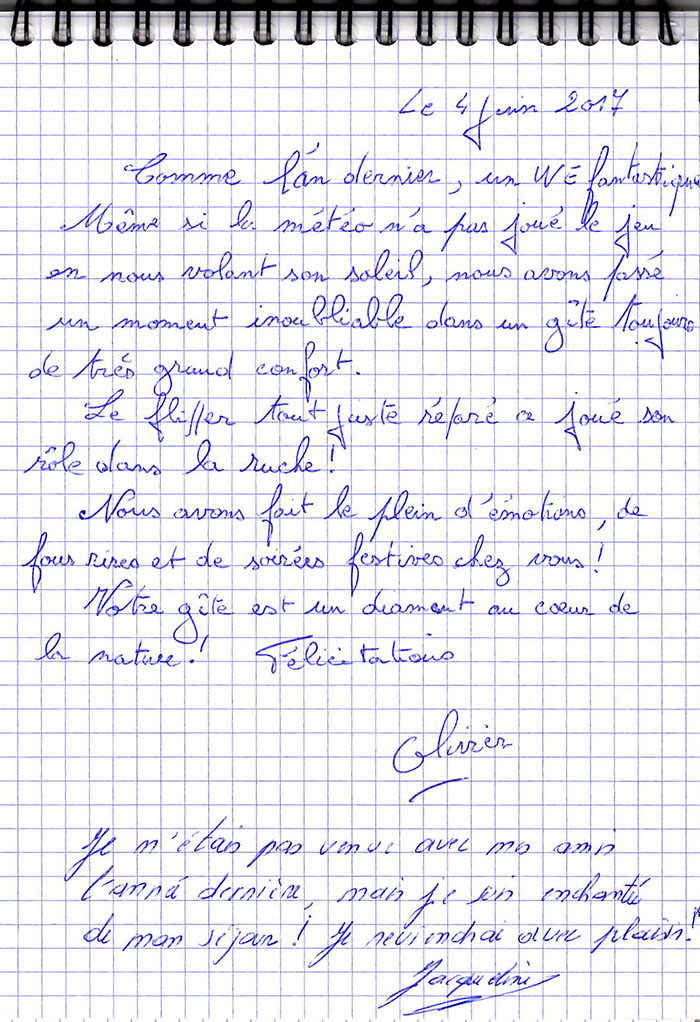 Le 4 juin 2017
Comme l'an dernier, un WE fantastique
Même si la météo n'a pas joué le jeu
en nous volant son soleil, nous avons passé
un moment inoubliable dans un gîte toujours
de très grand confort.
Le flipper tout juste réparé a joué son
rôle dans la ruche !
Nous avons fait le plein d'émotions, de
fous rires et de soirées festives chez vous !
Votre gîte est un diamant au cœur de
la nature ! Félicitations
Olivier
Je n'étais pas venue avec mes amis
l'anné dernière, mais je suis enchantée
de mon séjour ! Je reviendrai avec plaisir !
Jacqueline